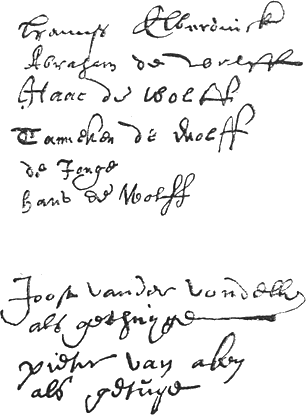 Hans Elberdinck
Abraham de Wolff
Isaac de Wolff
Tanneken de Wolff
de Jonge
hans de Wolff
Joost vander vondelen
als gethuijge
pieter van aken
als getuijge